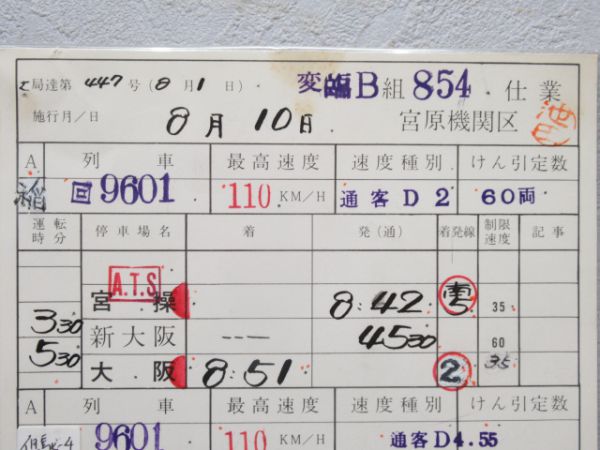 局達第 447 号 (8月1日)
変臨B組 854 仕業
施行月/日 8月10日 宮原機関区
A 列車 最高速度 速度種別 けん引定数
回9601 110 KM/H 通客D2 60両
運転時分 停車場名 着 発(通) 着発線 制限速度 記事
A.T.S
宮操 8:42 35
3 30 新大阪 --- 45 30 60
5 30 大阪 8:51 2 35
A 列車 最高速度 速度種別 けん引定数
9601 110 KM/H 通客D4.55